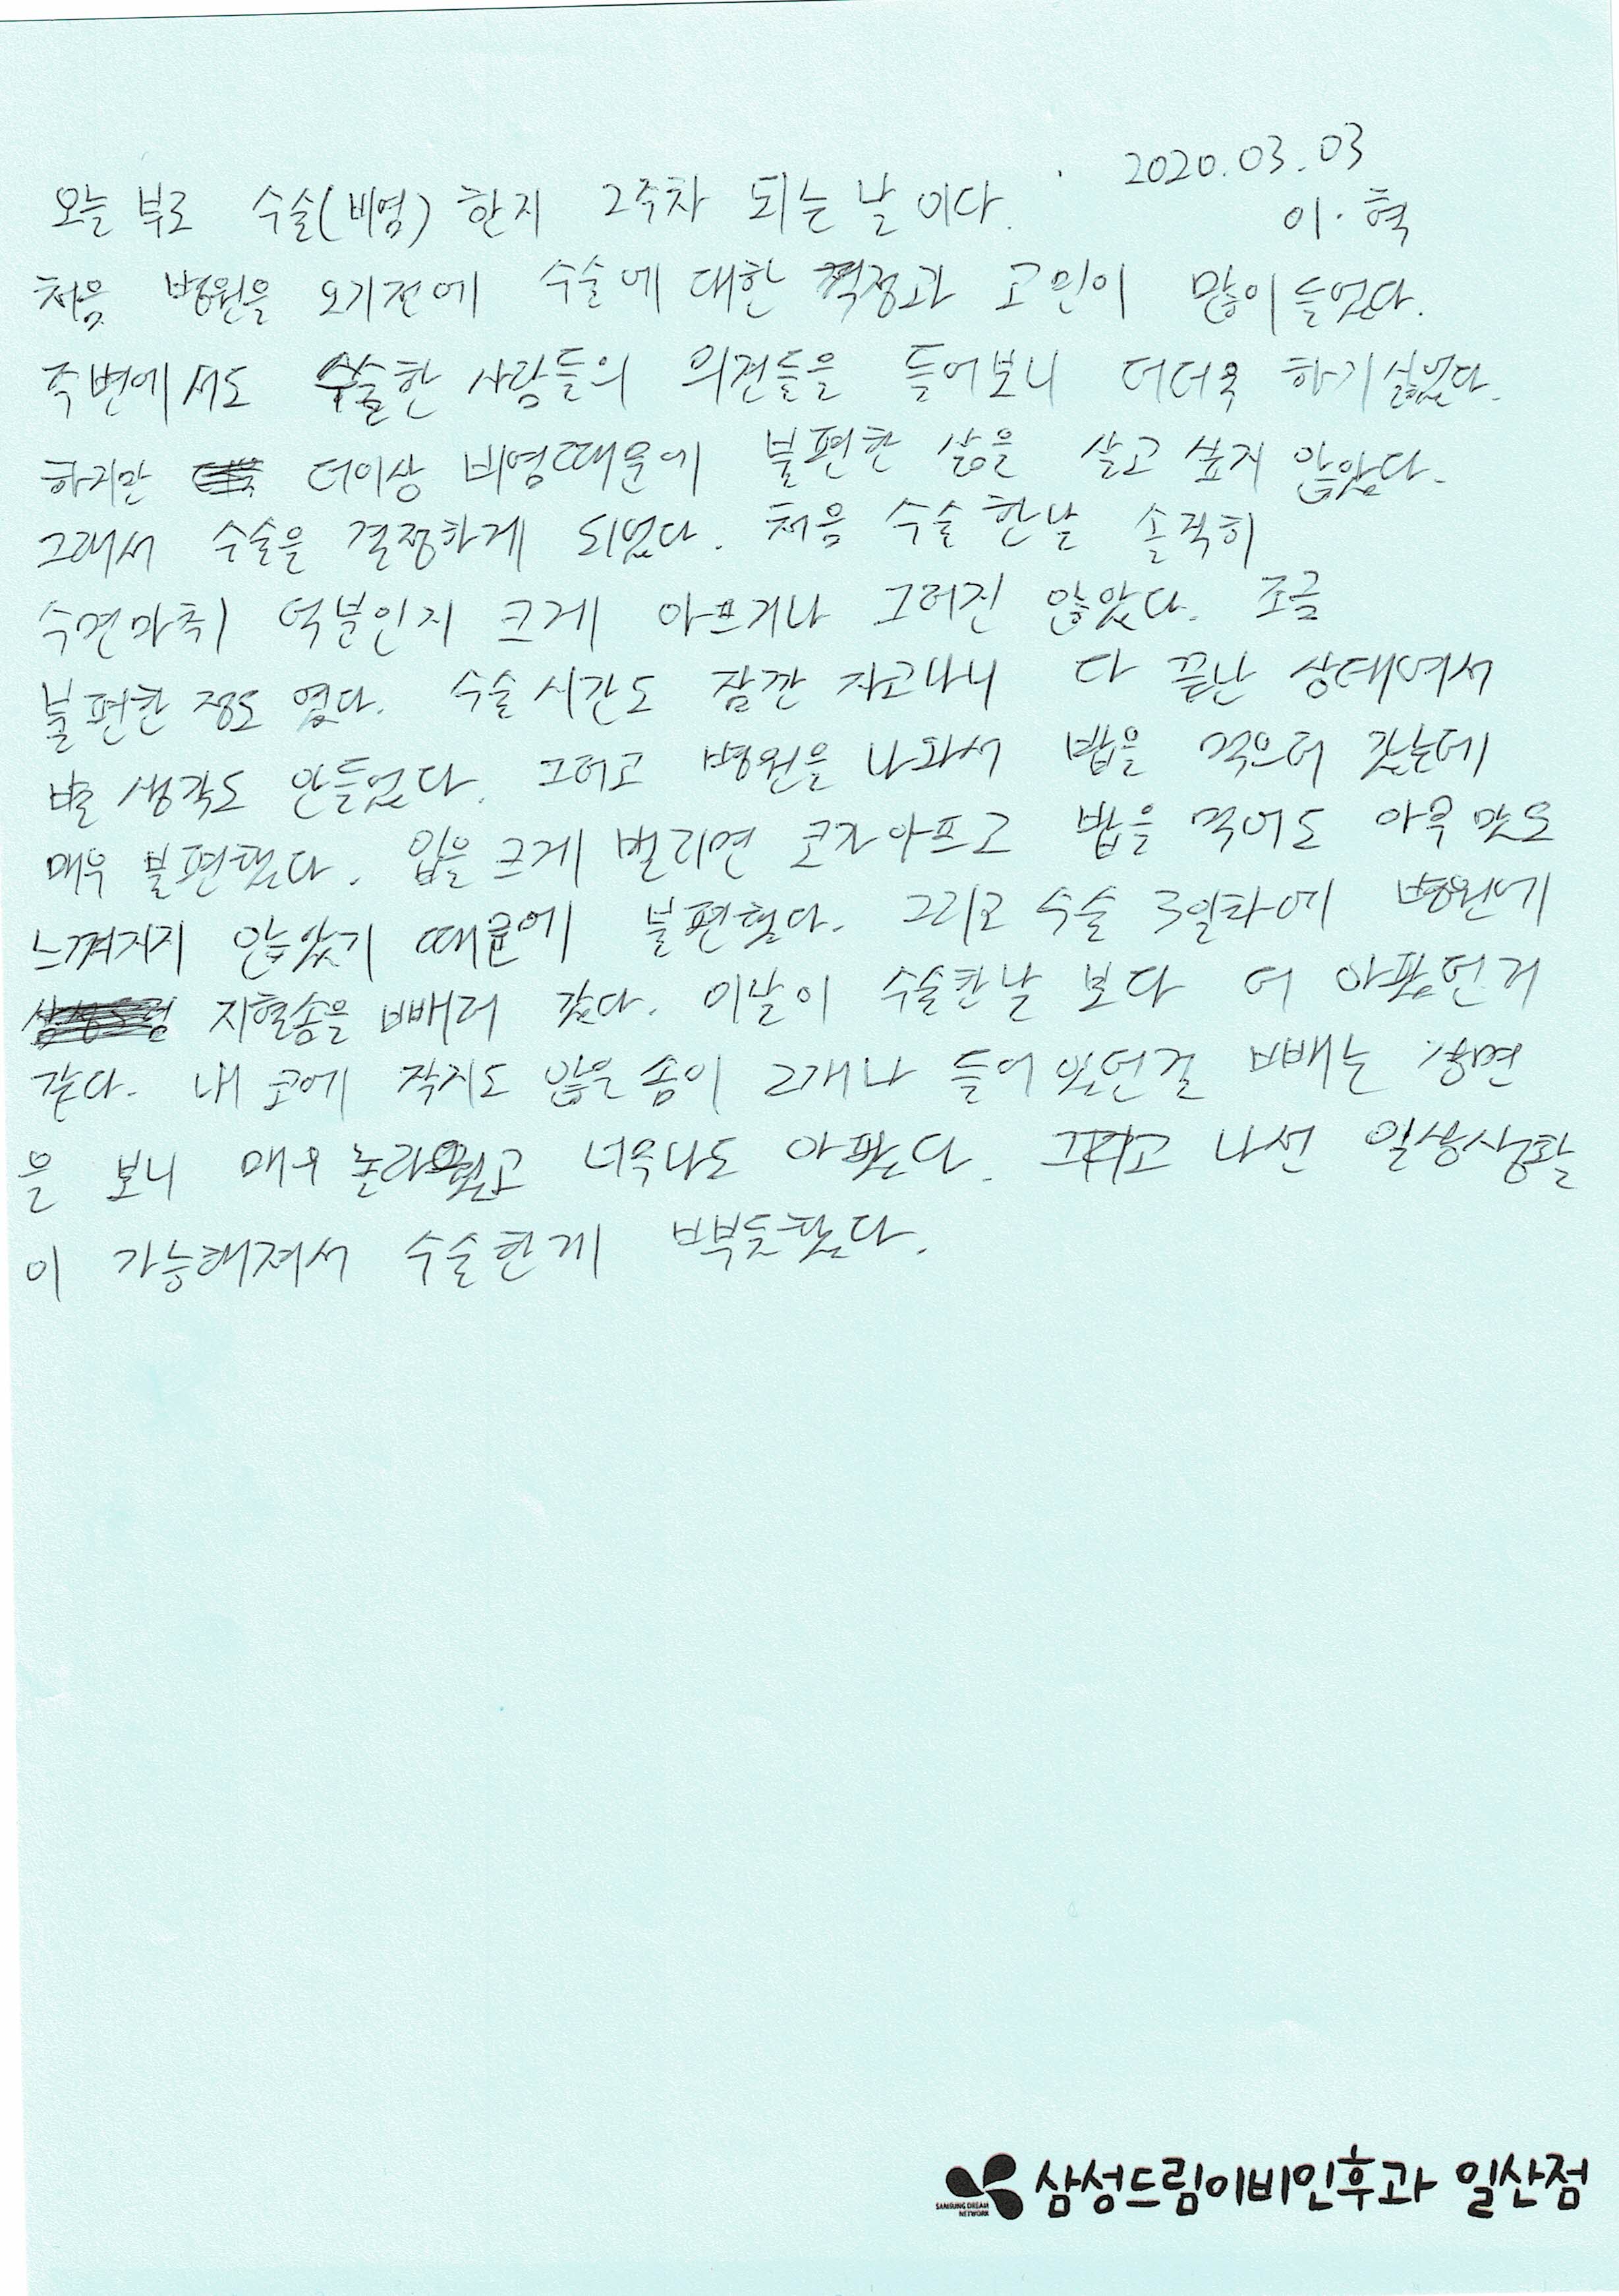 2020.03.03
오늘 부로 수술(비염) 한지 2주차 되는 날 이다.
이·혁
처음 병원을 오기전에 수술에 대한 걱정과 고민이 많이 들었다.
주변에서도 수술한 사람들의 의견들을 들어보니 더더욱 하기 싫었다.
하지만 더이상 비염때문에 불편한 삶을 살고 싶지 않았다.
그래서 수술을 결정하게 되었다. 처음 수술 한날 솔직히
수면마취 덕분인지 크게 아프거나 그러진 않았다. 조금
불편한 정도 였다. 수술시간도 잠깐 자고나니 다 끝난 상태여서
별 생각도 안들었다. 그러고 병원을 나와서 밥을 먹으러 갔는데
매우 불편했다. 입을 크게 벌리면 코가아프고 밥을 먹어도 아무 맛도
느껴지지 않았기 때문에 불편했다. 그리고 수술 3일차에 병원에
지혈솜을 빼러 갔다. 이날이 수술한날 보다 더 아팠던거
같다. 내 코에 작지도 않은 솜이 2개나 들어 있던걸 빼는 장면
을 보니 매우 놀라웠고 너무나도 아팠다. 그리고 나선 일상생활
이 가능해져서 수술한게 뿌듯했다.
삼성드림이비인후과 일산점
SAMSUNG DREAM
NETWORK